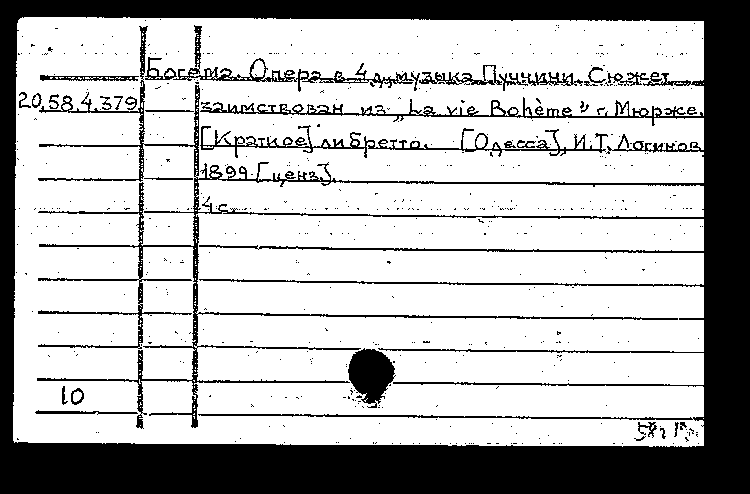 Богема. Опера в 4 д., музыка Пуччини. Сюжет
20.58.4.379 заимствован из „La vie Bohème" г. Мюрже.
[Краткое] либретто. [Одесса], И.Т. Логинов,
1899 [ценз].
4 с.
10